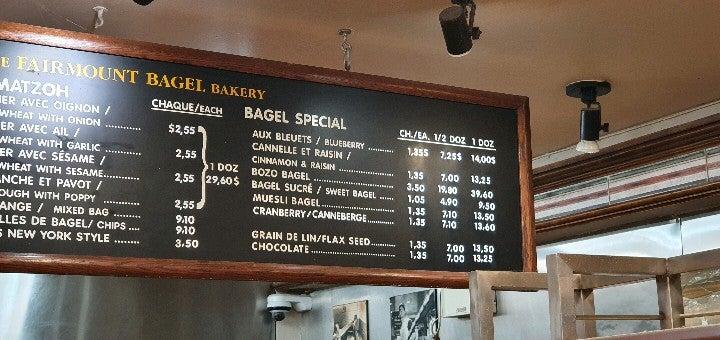 E FAIRMOUNT BAGEL BAKERY
MATZOH
CHAQUE/EACH
IER AVEC OIGNON /
WHEAT WITH ONION .......... $2,55
IER AVEC AIL /
WHEAT WITH GARLIC .......... 2,55
IER AVEC SÉSAME /
WHEAT WITH SESAME .......... 2,55
ANCHE ET PAVOT /
OUGH WITH POPPY .......... 2,55
1 DOZ
29,60$
ANGE / MIXED BAG .......... 9.10
LLES DE BAGEL/ CHIPS .... 9.10
S NEW YORK STYLE ....... 3.50
BAGEL SPECIAL
CH./EA. 1/2 DOZ 1 DOZ
AUX BLEUETS / BLUEBERRY ........ 1,35$ 7,25$ 14,00$
CANNELLE ET RAISIN /
CINNAMON & RAISIN .......... 1,35 7.00 13,25
BOZO BAGEL .......... 3.50 19.80 39.60
BAGEL SUCRÉ / SWEET BAGEL .... 1.05 4.90 9.50
MUESLI BAGEL .......... 1.35 7.10 13.50
CRANBERRY/CANNEBERGE .... 1.35 7.10 13.60
GRAIN DE LIN/FLAX SEED ........ 1,35 7,00 13,50
CHOCOLATE .......... 1.35 7.00 13.25